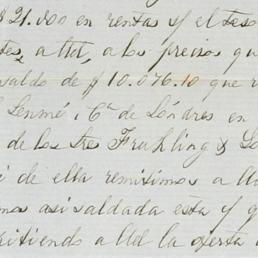 $21.000 en rentas s/ el teso
tes, a Ud, a los precios qu
saldo de $10.076.10 que r
Senmé, i Ca de Londres en
de los Sres Fruhling & Go
i de ella remitimos a U
mos asi saldada esta y q
mitiendo a Ud la oferta